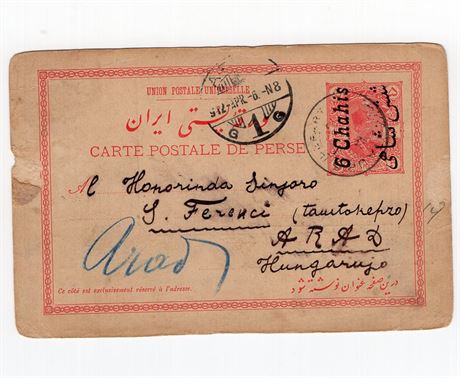 UNION POSTALE UNIVERSELLE
پستی ایران
CARTE POSTALE DE PERSE
6 Chahis
شش شاهی
912 APR. -6. -N8
G 1 G
Al Honorinda Sinjoro
S. Ferenci (tanitokepzo)
ARAD
Hungarujo
Arad
Ce côté est exclusivement réservé à l'adresse.
درین صفحه عنوان نوشته شود